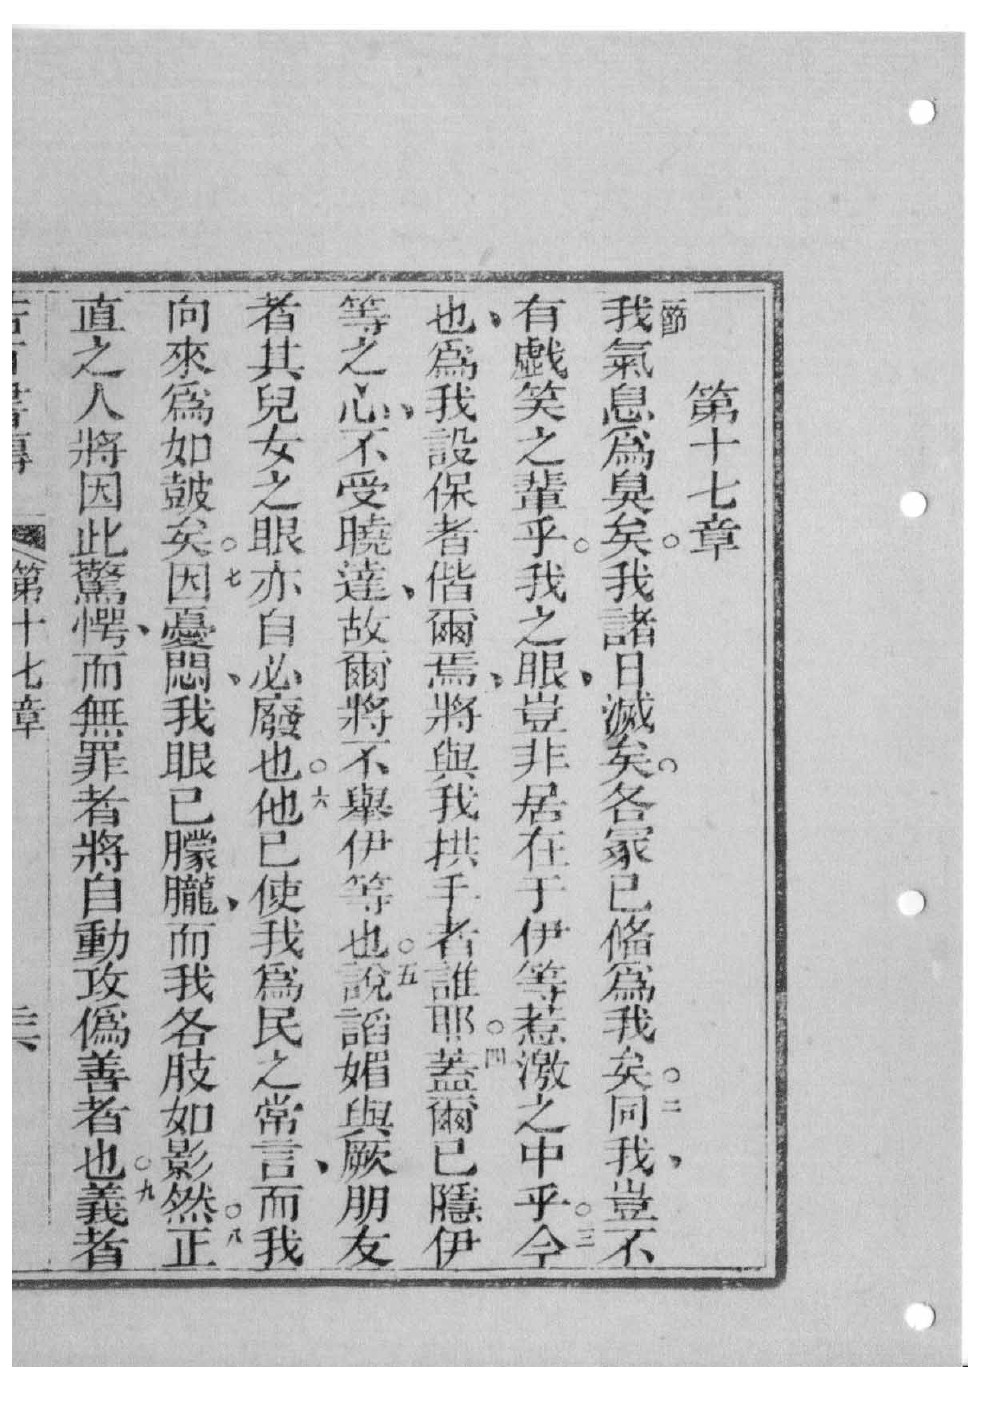 第十七章
一節我氣息爲臭矣。我諸日滅矣。各冢已俻爲我矣。二同我、豈不
有戱笑之輩乎。我之眼、豈非居在于伊等惹激之中乎。三今
也、爲我設保者偕爾焉、將與我拱手者誰耶。四蓋爾已隱伊
等之心、不受曉達、故爾將不舉伊等也。五說謟媚與厥朋友
者其兒女之眼亦自必廢也。六他已使我爲民之常言、而我
向來爲如皷矣。七因憂悶、我眼已朦朧、而我各肢如影然。八正
直之人將因此驚愕、而無罪者將自動攻僞善者也。九義者
第十七章